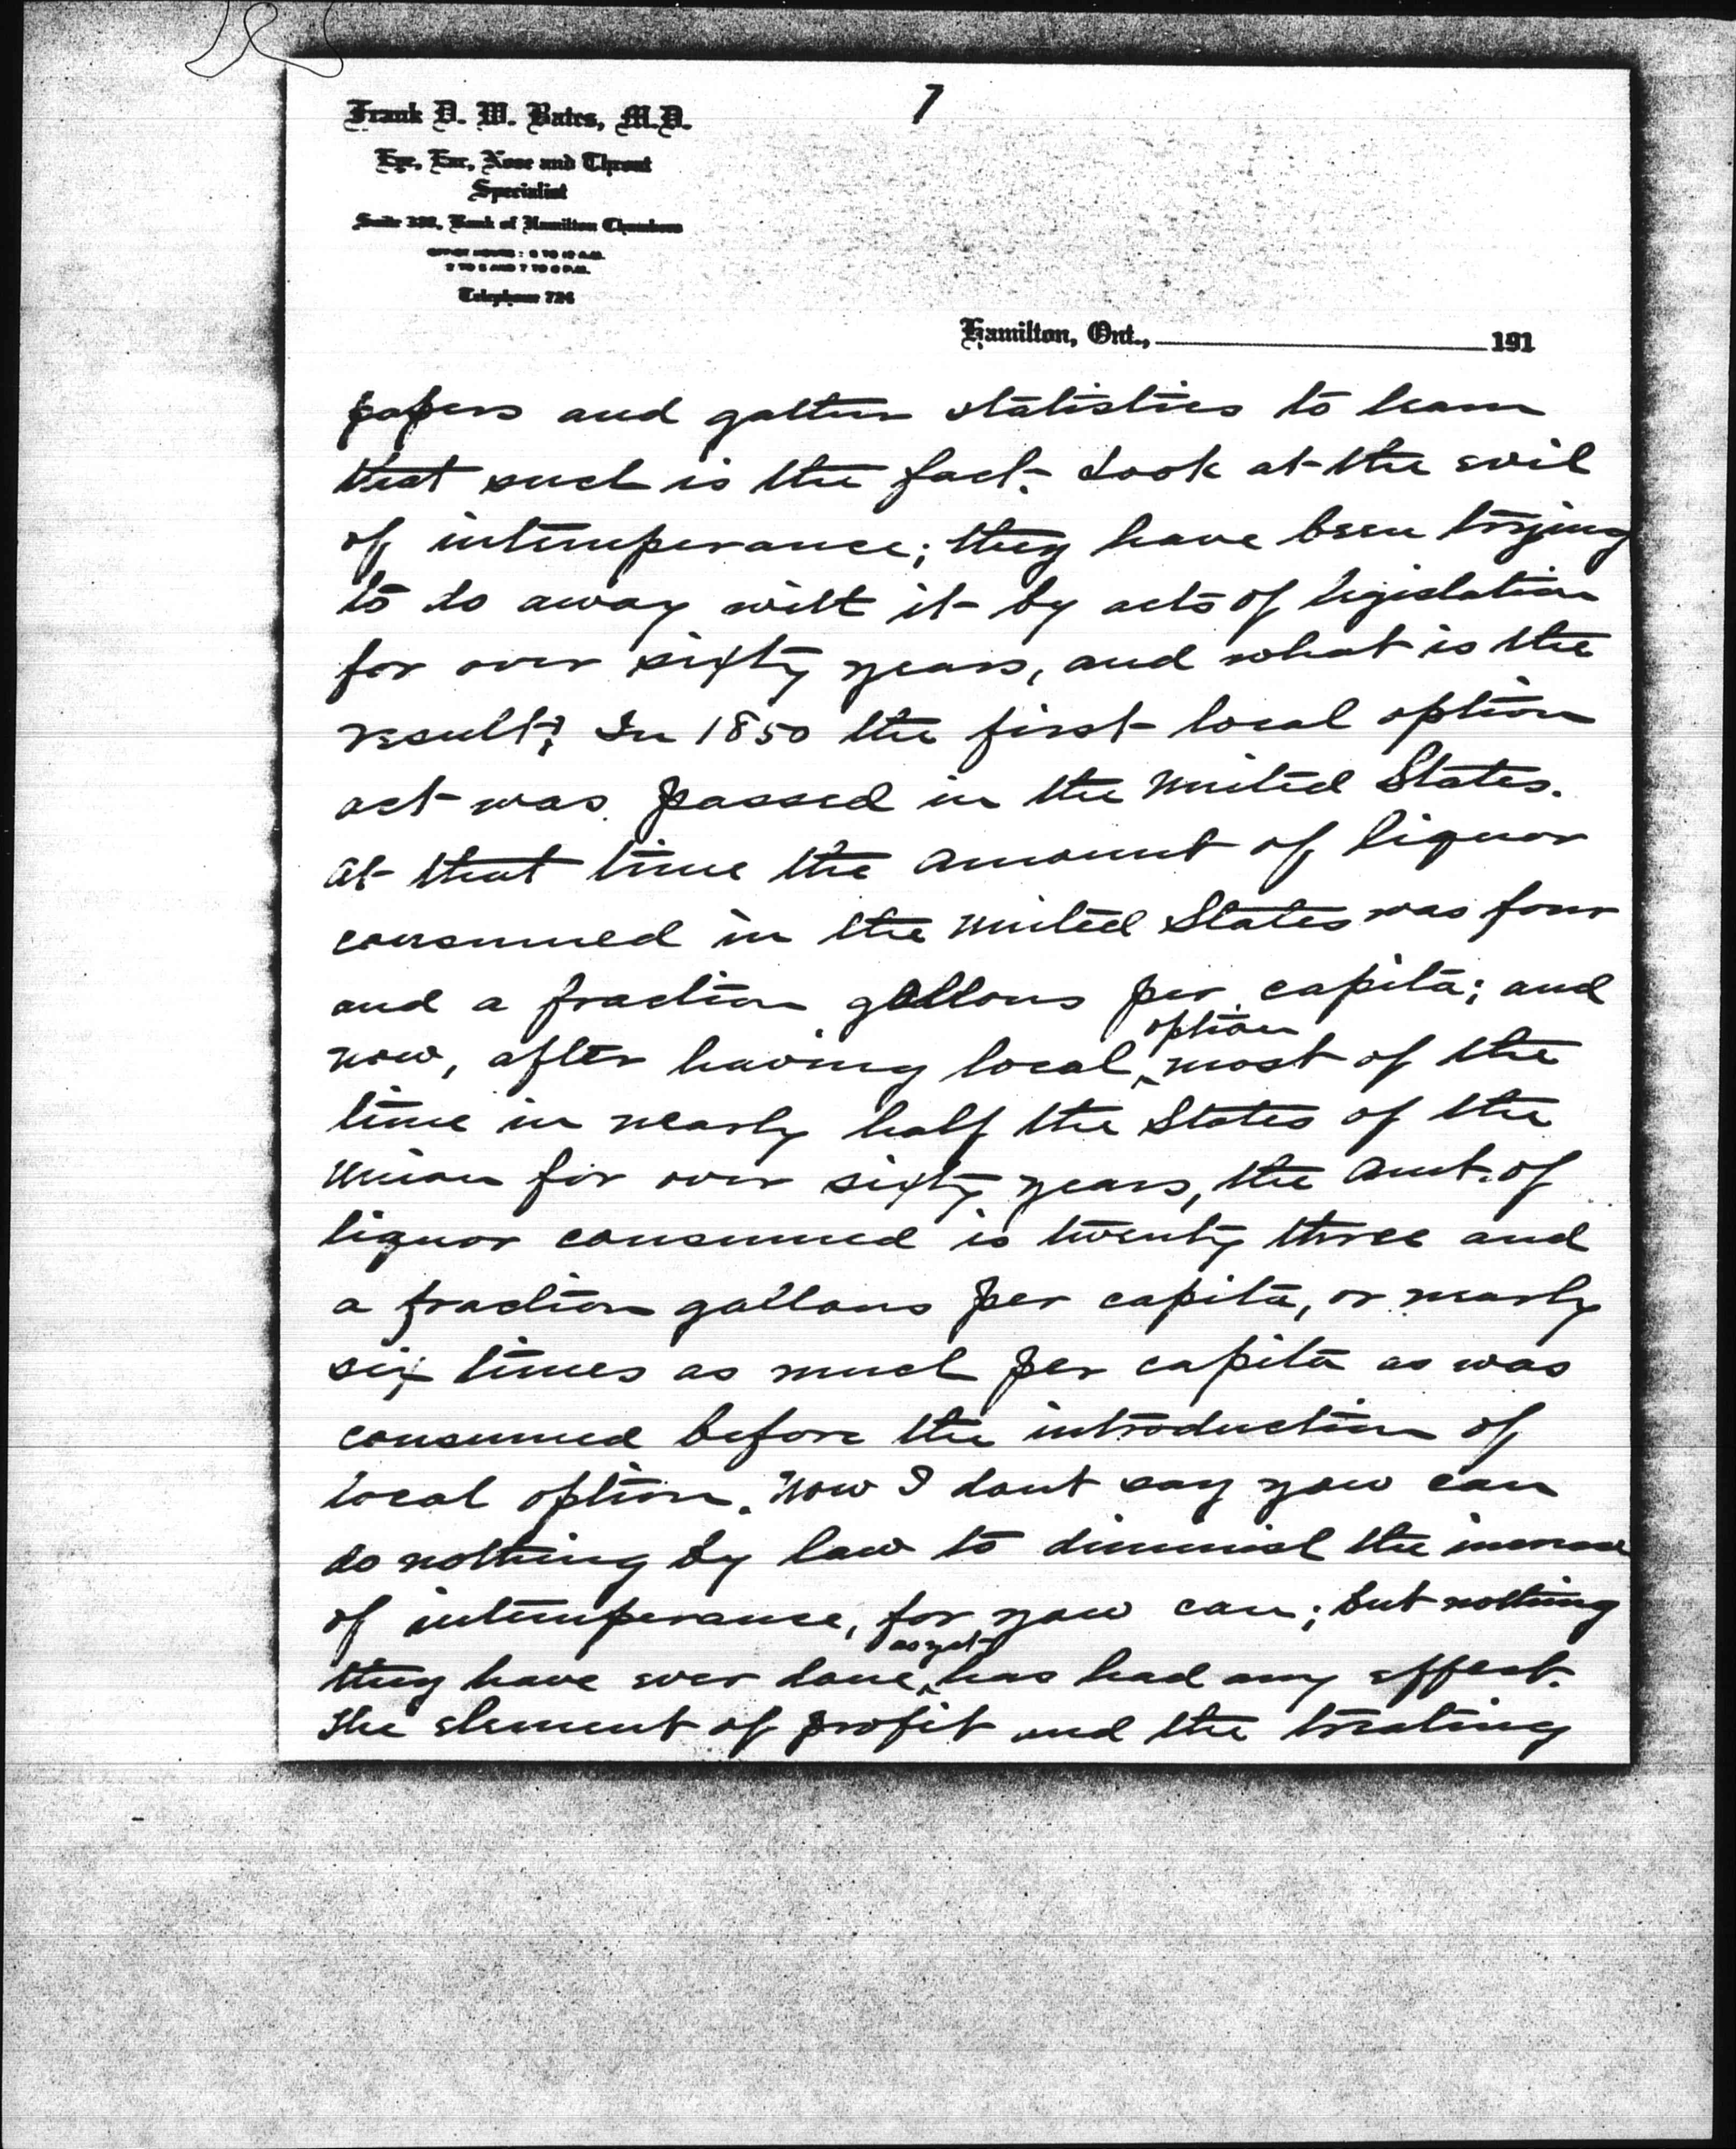 7
Frank D. W. Bates, M.D.
Eye, Ear, Nose and Throat
Specialist
Suite Bank of Hamilton Chambers
OFFICE HOURS: 9 TO 12 A.M.
2 TO 5 AND 7 TO 8 P.M.
Telephone 724
Hamilton, Ont., 191
papers and gather statistics to learn
that such is the fact. Look at the evil
of intemperance; they have been trying
to do away with it by acts of legislation
for over sixty years, and what is the
result? In 1850 the first local option
act was passed in the United States.
At that time the amount of liquor
consumed in the United States was four
and a fraction gallons per capita; and
now, after having local option most of the
time in nearly half the States of the
Union for over sixty years, the amt. of
liquor consumed is twenty three and
a fraction gallons per capita, or nearly
six times as much per capita as was
consumed before the introduction of
local option. Now I dont say you can
do nothing by law to diminish the increase
of intemperance, for you can; but nothing
they have ever done as yet has had any effect.
The element of profit and the treating